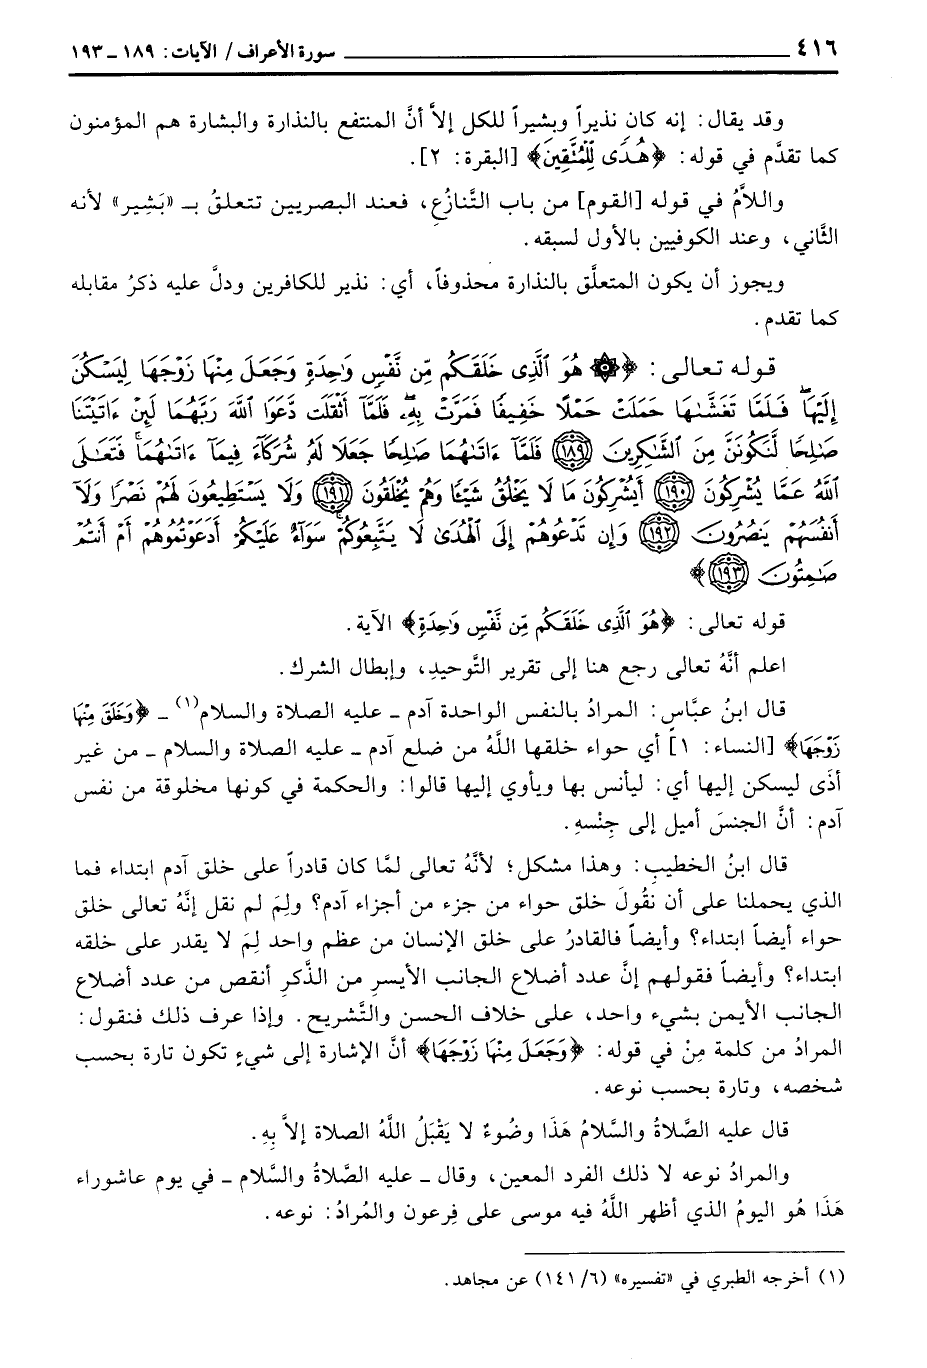 ٤١٦ سورة الأعراف/ الآيات: ١٨٩ ـ ١٩٣
وقد يقال: إنه كان نذيراً وبشيراً للكل إلاَّ أنَّ المنتفع بالنذارة والبشارة هم المؤمنون
كما تقدَّم في قوله: ﴿هُدًى لِّلْمُتَّقِينَ﴾ [البقرة: ٢].
واللاَّمُ في قوله [القوم] من باب التَّنازُعِ، فعند البصريين تتعلقُ بـ «بَشِير» لأنه
الثَّاني، وعند الكوفيين بالأول لسبقه.
ويجوز أن يكون المتعلَّق بالنذارة محذوفاً، أي: نذير للكافرين ودلَّ عليه ذكرُ مقابله
كما تقدم.
قوله تعالى: ﴿۞ هُوَ ٱلَّذِى خَلَقَكُم مِّن نَّفْسٍ وَٰحِدَةٍ وَجَعَلَ مِنْهَا زَوْجَهَا لِيَسْكُنَ
إِلَيْهَا ۖ فَلَمَّا تَغَشَّىٰهَا حَمَلَتْ حَمْلًا خَفِيفًا فَمَرَّتْ بِهِۦ ۖ فَلَمَّآ أَثْقَلَت دَّعَوَا ٱللَّهَ رَبَّهُمَا لَئِنْ ءَاتَيْتَنَا
صَٰلِحًا لَّنَكُونَنَّ مِنَ ٱلشَّٰكِرِينَ (١٨٩) فَلَمَّآ ءَاتَىٰهُمَا صَٰلِحًا جَعَلَا لَهُۥ شُرَكَآءَ فِيمَآ ءَاتَىٰهُمَا ۚ فَتَعَٰلَى
ٱللَّهُ عَمَّا يُشْرِكُونَ (١٩٠) أَيُشْرِكُونَ مَا لَا يَخْلُقُ شَيْـًٔا وَهُمْ يُخْلَقُونَ (١٩١) وَلَا يَسْتَطِيعُونَ لَهُمْ نَصْرًا وَلَآ
أَنفُسَهُمْ يَنصُرُونَ (١٩٢) وَإِن تَدْعُوهُمْ إِلَى ٱلْهُدَىٰ لَا يَتَّبِعُوكُمْ ۚ سَوَآءٌ عَلَيْكُمْ أَدَعَوْتُمُوهُمْ أَمْ أَنتُمْ
صَٰمِتُونَ (١٩٣)﴾
قوله تعالى: ﴿هُوَ ٱلَّذِى خَلَقَكُم مِّن نَّفْسٍ وَٰحِدَةٍ﴾ الآية.
اعلم أنَّهُ تعالى رجع هنا إلى تقرير التَّوحيدِ، وإبطال الشرك.
قال ابنُ عبَّاسٍ: المرادُ بالنفس الواحدة آدم ـ عليه الصلاة والسلام(١) ـ ﴿وَخَلَقَ مِنْهَا
زَوْجَهَا﴾ [النساء: ١] أي حواء خلقها اللَّهُ من ضلع آدم ـ عليه الصلاة والسلام ـ من غير
أذًى ليسكن إليها أي: ليأنس بها ويأوي إليها قالوا: والحكمة في كونها مخلوقة من نفس
آدم: أنَّ الجنسَ أميل إلى جِنْسهِ.
قال ابنُ الخطيبِ: وهذا مشكل؛ لأنَّهُ تعالى لمَّا كان قادراً على خلق آدم ابتداء فما
الذي يحملنا على أن نقُولَ خلق حواء من جزء من أجزاء آدم؟ ولِمَ لم نقل إنَّهُ تعالى خلق
حواء أيضاً ابتداء؟ وأيضاً فالقادرُ على خلق الإنسان من عظم واحد لِمَ لا يقدر على خلقه
ابتداء؟ وأيضاً فقولهم إنَّ عدد أضلاع الجانب الأيسرِ من الذَّكرِ أنقص من عدد أضلاع
الجانب الأيمن بشيء واحد، على خلاف الحسن والتَّشريح. وإذا عرف ذلك فنقول:
المرادُ من كلمة مِنْ في قوله: ﴿وَجَعَلَ مِنْهَا زَوْجَهَا﴾ أنَّ الإشارة إلى شيءٍ تكون تارة بحسب
شخصه، وتارة بحسب نوعه.
قال عليه الصَّلاةُ والسَّلامُ هَذَا وضُوءٌ لا يَقْبَلُ اللَّهُ الصلاة إلاَّ بِهِ.
والمرادُ نوعه لا ذلك الفرد المعين، وقال ـ عليه الصَّلاةُ والسَّلام ـ في يوم عاشوراء
هَذَا هُو اليومُ الذي أظهر اللَّهُ فيه موسى على فِرعون والمُرادُ: نوعه.
(١) أخرجه الطبري في «تفسيره» (٦/ ١٤١) عن مجاهد.